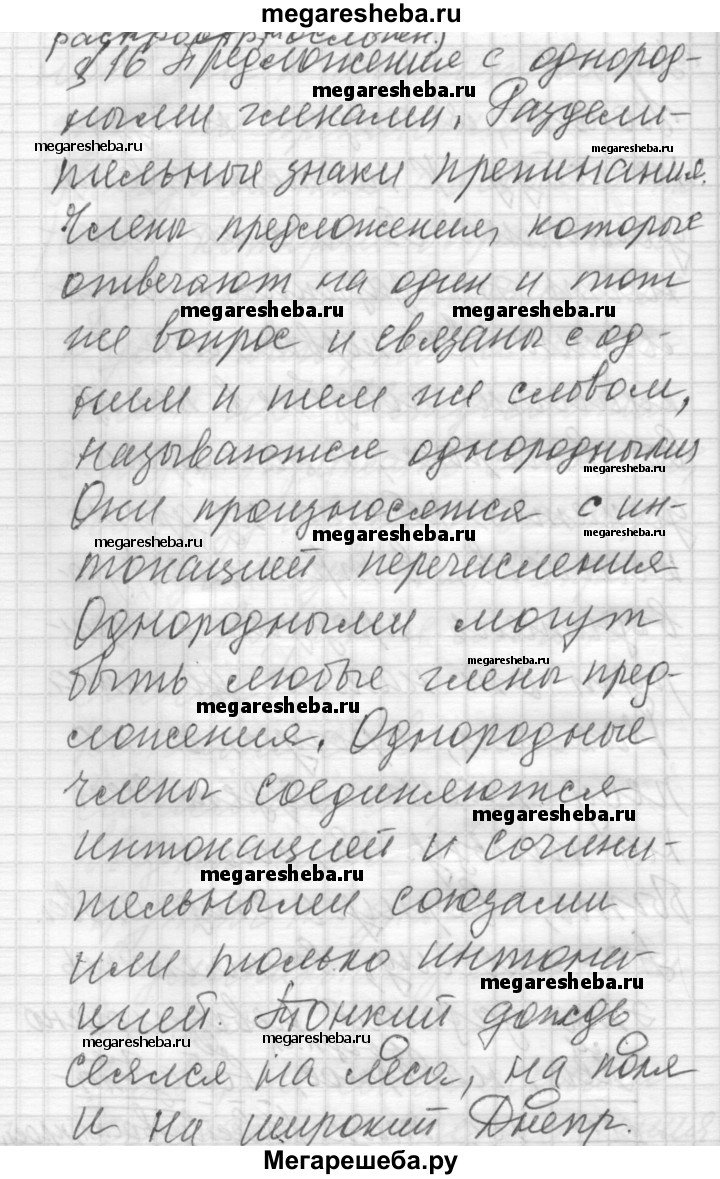 megaresheba.ru
§ 16 Предложения с однород-
megaresheba.ru
ными членами. Раздели-
megaresheba.ru megaresheba.ru
тельные знаки препинания.
Члены предложения, которые
отвечают на один и тот
megaresheba.ru megaresheba.ru
же вопрос и связаны с од-
ним и тем же словом,
называются однородными
megaresheba.ru
Они произносятся с ин-
megaresheba.ru megaresheba.ru megaresheba.ru
тонацией перечисления
Однородными могут
megaresheba.ru
быть любые члены пред-
megaresheba.ru
ложения. Однородные
члены соединяются
megaresheba.ru
интонацией и сочини-
megaresheba.ru
тельными союзами
или только интона-
megaresheba.ru
цией. Тонкий дождь
megaresheba.ru megaresheba.ru
сеялся на леса, на поля
и на широкий Днепр.
Мегарешеба.ру